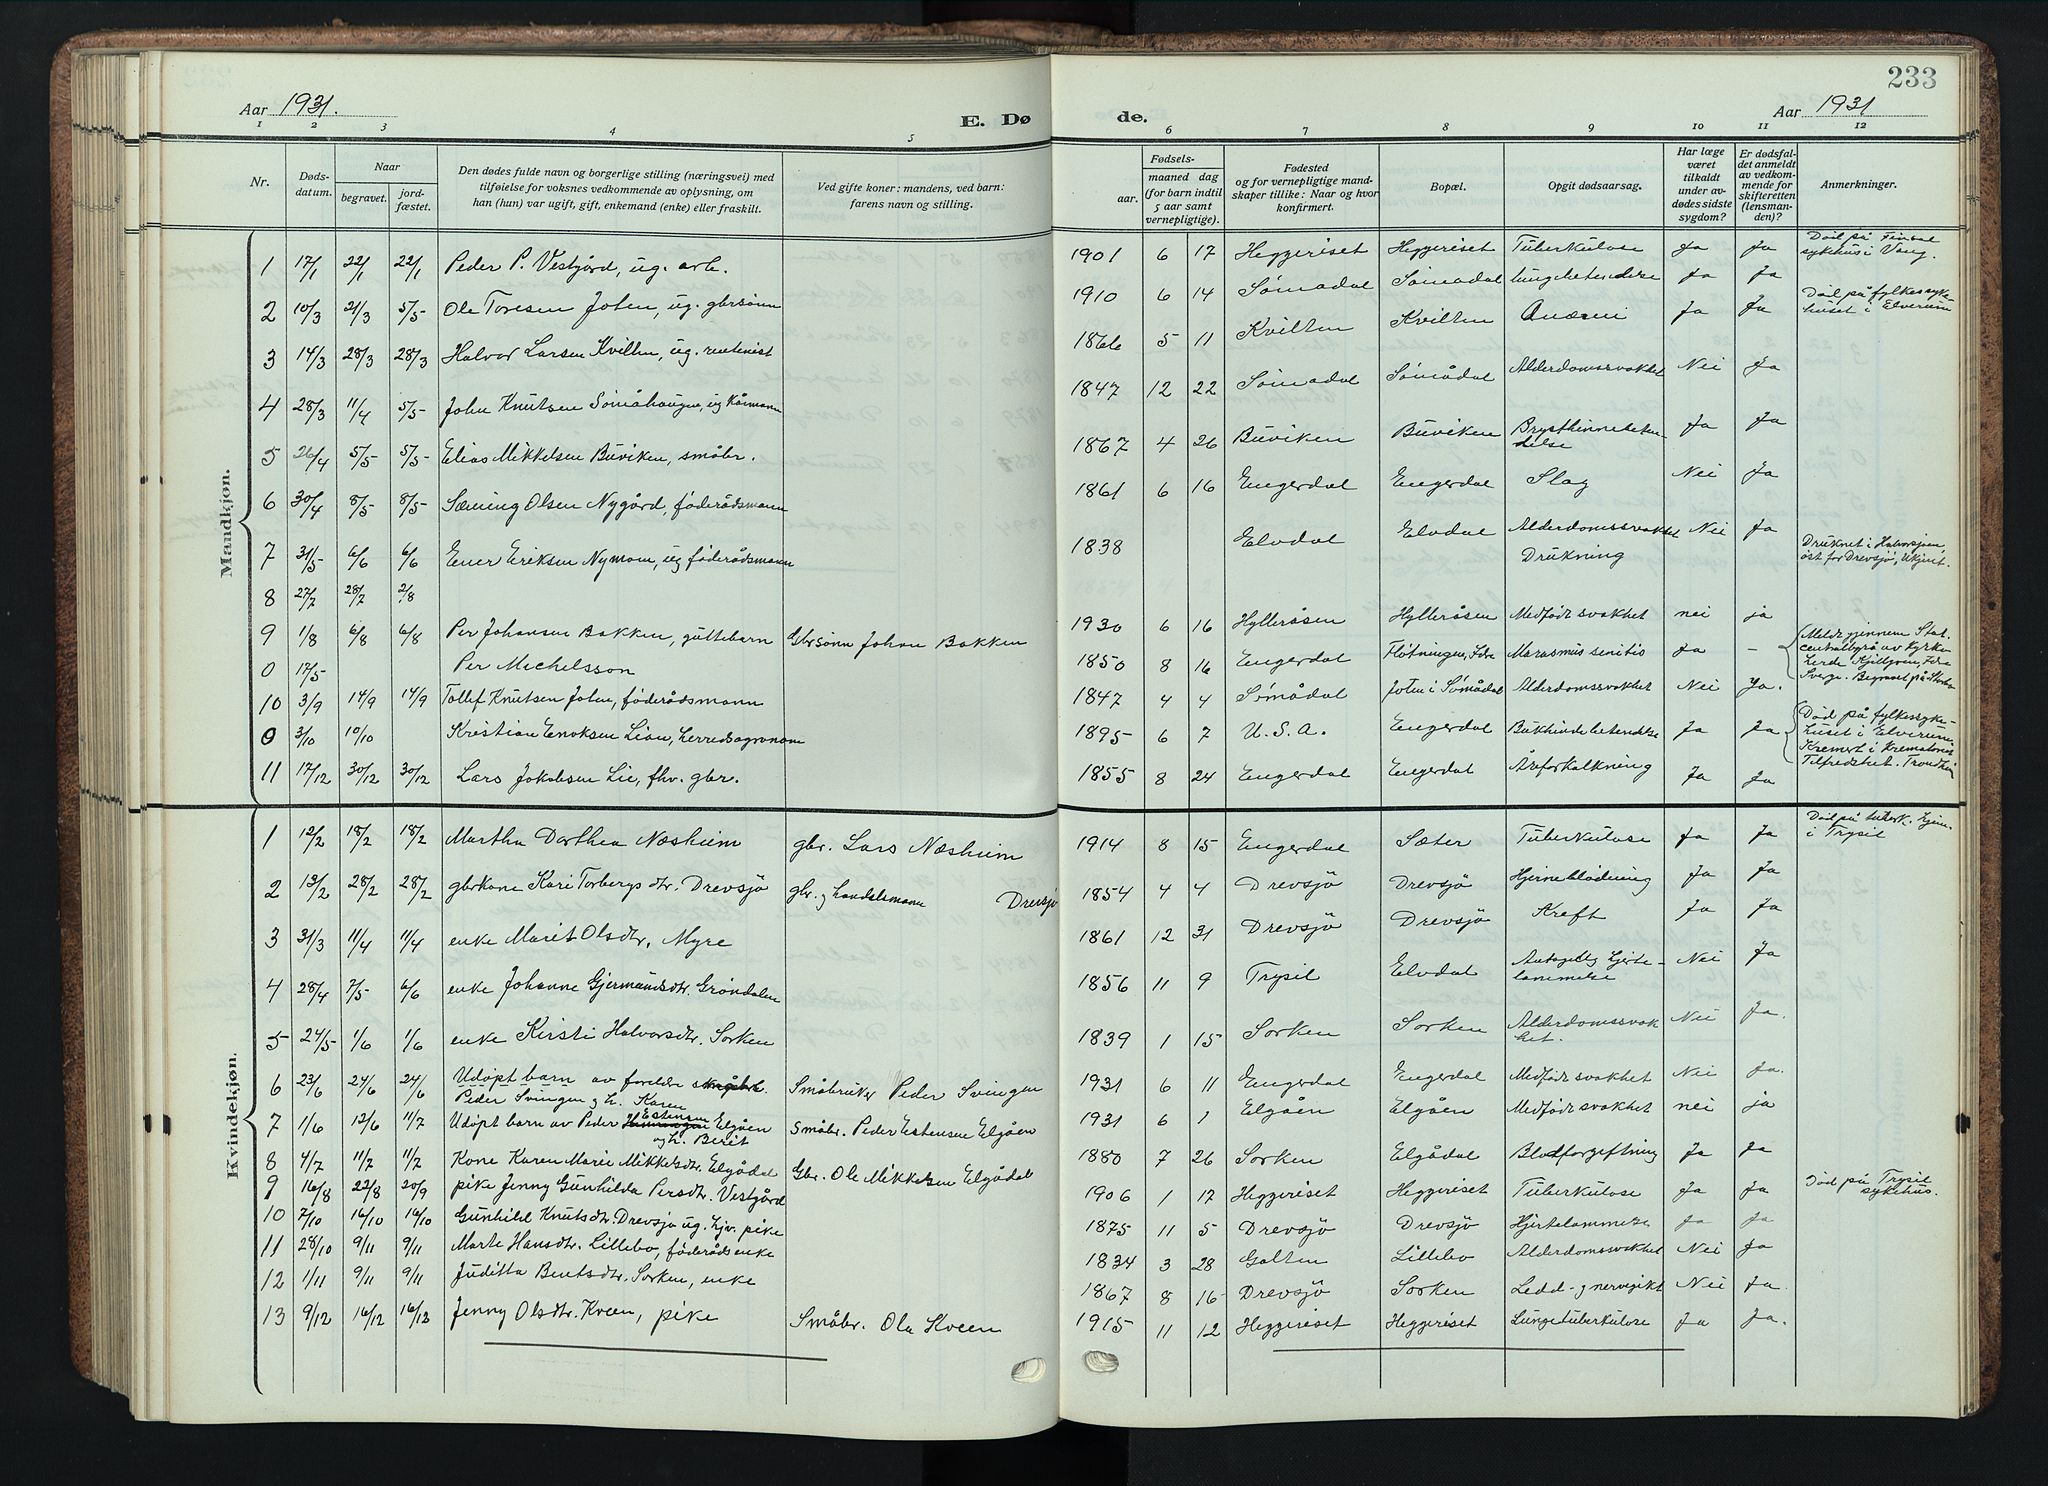 233
Aar 1931. E. Dø de. Aar 1931
1 2 3 4 5 6 7 8 9 10 11 12
Nr. Døds-datum. Naar begravet. jord-fæstet. Den dødes fulde navn og borgerlige stilling (næringsvei) med tilføielse for voksnes vedkommende av oplysning, om han (hun) var ugift, gift, enkemand (enke) eller fraskilt. Ved gifte koner: mandens, ved barn: farens navn og stilling. Fødsels- aar. maaned dag (for barn indtil 5 aar samt vernepligtige). Fødested og for vernepligtige mandskaper tillike: Naar og hvor konfirmert. Bopæl. Opgit dødsaarsag. Har læge været tilkaldt under avdødes sidste sygdom? Er dødsfaldet anmeldt av vedkommende for skifteretten (lensmanden)? Anmerkninger.
Mandkjøn.
1 17/1 22/1 22/1 Peder P. Vestgård, ug. arb. 1901 6 17 Heggeriset Heggeriset Tuberkulose Ja Ja Död på sykehus i Vang.
2 10/3 21/3 5/5 Ole Toresen Joten, ug. gbrsönn 1910 6 14 Sömådal Sömådal lungebetendelse Ja Ja Död på fylkessykehuset i Elverum
3 14/3 28/3 28/3 Halvor Larsen Kvilten, ug. rentenist 1866 5 11 Kvilten Kvilten Anæmi Ja Ja
4 28/3 11/4 5/5 John Knutsen Sömåhaugen, ug Kårmann 1847 12 22 Sömådal Sömådal Alderdomssvakhet Nei Ja
5 26/4 5/5 5/5 Elias Mikkelsen Buviken, småbr. 1867 4 26 Buviken Buviken Brysthinnebetendelse Ja Ja
6 30/4 8/5 8/5 Sæming Olsen Nygård, föderådsmann 1861 6 16 Engerdal Engerdal Slag Nei Ja
7 31/5 6/6 6/6 Ener Eriksen Nymoen, ug föderådsmann 1838 Elvdal Elvdal Alderdomssvakhet Nei Ja
8 27/7 28/7 2/8 Drukning Druknet i Halvorsjøen, öst for Drevsjö, Ukjent.
9 1/8 6/8 6/8 Per Johansen Bakken, guttebarn Gbrsönn Johan Bakken 1930 6 16 Hylleråsen Hylleråsen Medfödt svakhet nei ja
0 17/5 Per Michelsson 1850 8 16 Engerdal Flötningen, Idre Marasmus senilis Ja - Meldt gjennem Stat. centralbyrå av kyrkoherde Kjillgren, Idre Sverge. Begravet på
10 3/9 14/9 14/9 Tollef Knutsen Joten, föderådsmann 1847 4 4 Sömådal Joten i Sömådal Alderdomssvakhet Nei Ja.
0 3/10 10/10 Kristian Enoksen Lien, herredsagronom 1895 6 7 U.S.A. Engerdal Bukhindebetendelse Ja Ja Död på fylkessykehuset i Elverum Kremert i Krematoriet Tilfredshet. Trondheim
11 17/12 30/12 30/12 Lars Jokobsen Lie, fhv. gbr. 1855 8 24 Engerdal Engerdal Åreforkalkning Ja Ja
Kvindekjøn.
1 12/2 18/2 18/2 Martha Dorthea Næsheim gbr. Lars Næsheim 1914 8 15 Engerdal Sæter Tuberkulose Ja Ja Död på tuberk. hjem. i Trysil
2 13/2 28/2 28/2 gbrkone Kari Torbergsdtr. Drevsjö gbr. og handelsmann Drevsjö 1854 4 4 Drevsjö Drevsjö Hjerneblödning Ja Ja
3 31/3 11/4 11/4 enke Marit Olsdtr. Myre 1861 12 31 Drevsjö Drevsjö Kreft Ja Ja
4 28/4 7/5 6/6 enke Johanne Gjermundsdtr. Gröndalen 1856 11 9 Trysil Elvdal Antagelig hjertelammelse Nei Ja
5 24/5 1/6 1/6 enke Kirsti Halvorsdtr. Sorken 1839 1 15 Sorken Sorken Alderdomssvakhet. Nei Ja.
6 23/6 24/6 24/6 Udöpt barn av foreldre småbr. Peder Svingen og h. Karen Småbruker Peder Svingen 1931 6 11 Engerdal Engerdal Medfödt svakhet Nei Ja.
7 1/6 12/6 11/7 Udöpt barn av Peder Estensen Elgåen og h. Berit Småbr. Peder Estensen Elgåen 1931 6 1 Elgåen Elgåen Medfödt svakhet nei ja
8 4/7 11/7 11/7 Kone Karen Marie Mikkelsdtr. Elgådal Gbr. Ole Mikkelsen Elgådal 1880 7 26 Sorken Elgådal Blodforgiftning Ja Ja
9 16/8 22/8 20/9 pike Jenny Gunhilda Persdtr. Vestgård 1906 1 17 Heggeriset Heggeriset Tuberkulose Ja Ja Död på Trysil sykehus.
10 7/10 16/10 16/10 Gunhild Knutsdtr. Drevsjö ug. hjv. pike 1875 11 5 Drevsjö Drevsjö Hjertelammelse Ja Ja
11 28/10 9/11 9/11 Marte Hansdtr. Lillebo, föderådsenke 1834 3 28 Galten Lillebo Alderdomssvakhet Nei Ja
12 1/11 9/11 9/11 Juditta Bentsdtr. Sorken, enke 1867 8 16 Drevsjö Sorken Ledd- og nervegikt Nei Ja.
13 9/12 16/12 16/12 Jenny Olsdtr. Kveen, pike Småbr. Ola Kveen 1915 11 12 Heggeriset Heggeriset Lungetuberkulose Ja Ja.